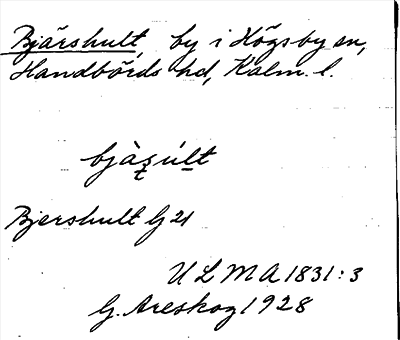 Bjärshult, by i Högsby sn,
Handbörds hd, Kalm. l.
bjàʂúlt
Bjershult G 21
ULMA 1831:3
G. Areskog 1928